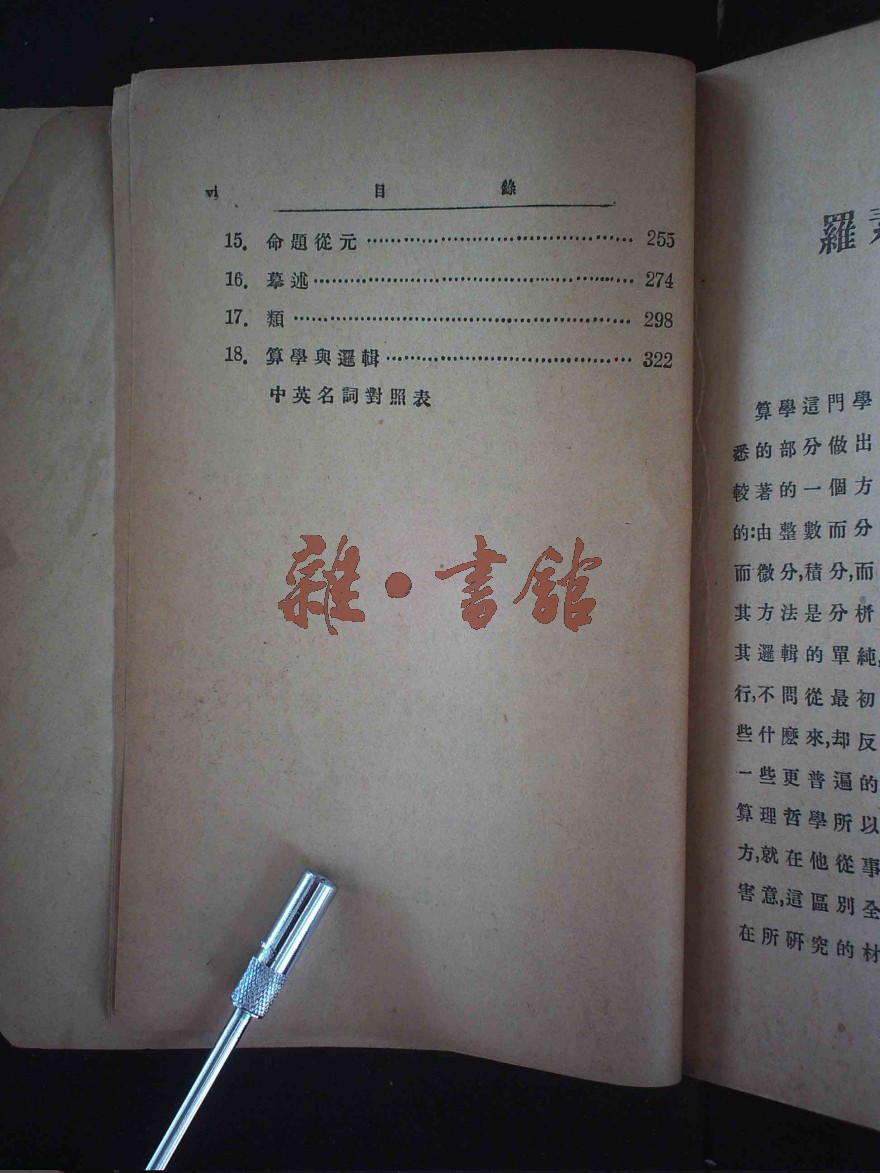 vi 目錄
15. 命題從元 255
16. 摹述 274
17. 類 298
18. 算學與邏輯 322
中英名詞對照表
雜·書館
羅素
算學這門學
悉的部分做出
較著的一個方
的:由整數而分
而微分,積分,而
其方法是分析
其邏輯的單純,
行,不問從最初
些什麽來,却反
一些更普遍的
算理哲學所以
方,就在他從事
害意,這區別全
在所研究的材